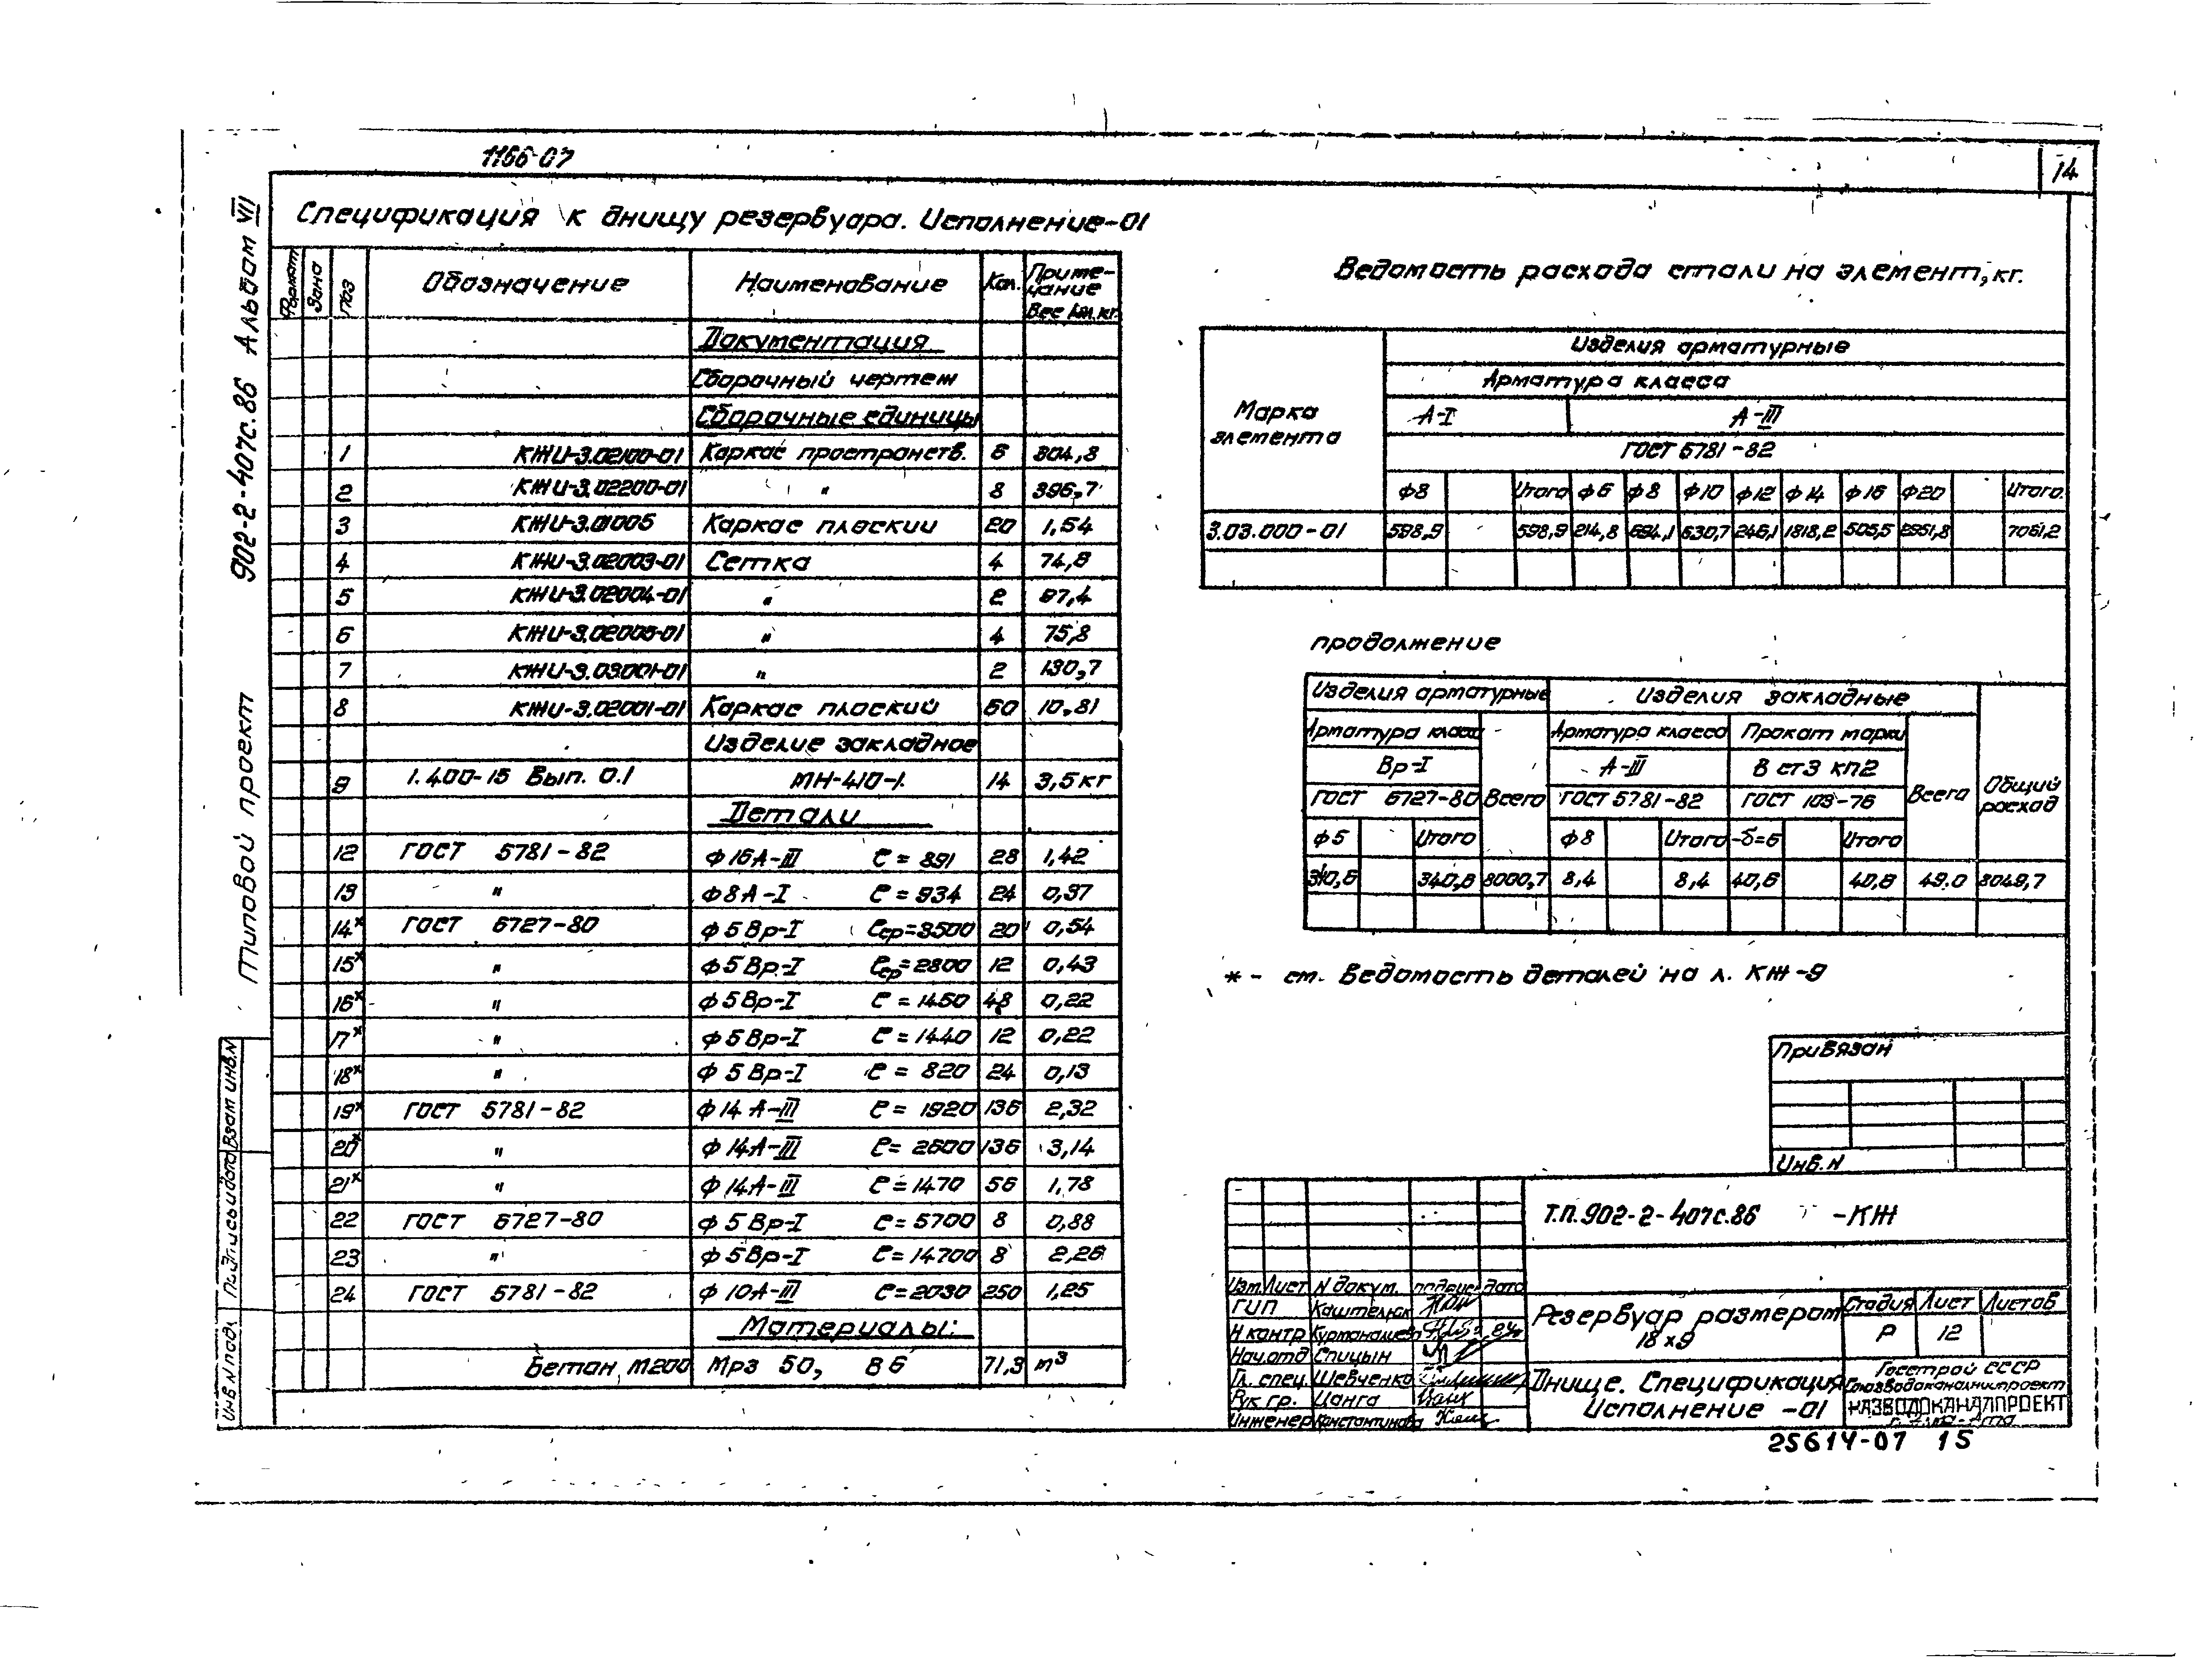 1166-07
14
902-2-407с.86 Альбом VII
Типовой проект
Спецификация к днищу резервуара. Исполнение-01
Формат Зона Поз Обозначение Наименование Кол. Примечание Вес 1шт.кг.
Документация
Сборочный чертеж
Сборочные единицы
1 КЖИ-3.02100-01 Каркас пространств. 6 304,8
2 КЖИ-3.02200-01 " 8 396,7
3 КЖИ-3.01005 Каркас плоский 20 1,54
4 КЖИ-3.02003-01 Сетка 4 74,8
5 КЖИ-3.02004-01 " 2 87,4
6 КЖИ-3.02005-01 " 4 75,8
7 КЖИ-3.03001-01 " 2 130,7
8 КЖИ-3.02001-01 Каркас плоский 50 10,81
Изделие закладное
9 1.400-15 Вып. 0.1 МН-410-1 14 3,5кг
Детали
12 ГОСТ 5781-82 ф16А-III ℓ=891 28 1,42
13 " ф8А-I ℓ=934 24 0,37
14* ГОСТ 6727-80 ф5Вр-I ℓср=3500 20 0,54
15* " ф5Вр-I ℓср=2800 12 0,43
16* " ф5Вр-I ℓ=1450 48 0,22
17* " ф5Вр-I ℓ=1440 12 0,22
18* " ф5Вр-I ℓ=820 24 0,13
19* ГОСТ 5781-82 ф14А-III ℓ=1920 136 2,32
20* " ф14А-III ℓ=2600 136 3,14
21* " ф14А-III ℓ=1470 56 1,78
22 ГОСТ 6727-80 ф5Вр-I ℓ=5700 8 0,88
23 " ф5Вр-I ℓ=14700 8 2,26
24 ГОСТ 5781-82 ф10А-III ℓ=2030 250 1,25
Материалы:
Бетон М200 Мрз 50, В6 71,3 м³
Ведомость расхода стали на элемент, кг.
Марка элемента
Изделия арматурные
Арматура класса
А-I А-III
ГОСТ 5781-82
ф8 Итого ф6 ф8 ф10 ф12 ф14 ф16 ф20 Итого
3.03.000-01 598,9 598,9 214,8 694,1 630,7 246,1 1818,2 505,5 2951,8 7061,2
продолжение
Изделия арматурные Изделия закладные
Арматура класса Всего Арматура класса Прокат марки Всего Общий расход
Вр-I А-III В ст3 кп2
ГОСТ 6727-80 ГОСТ 5781-82 ГОСТ 103-76
ф5 Итого ф8 Итого -δ=6 Итого
340,6 340,6 8000,7 8,4 8,4 40,6 40,6 49.0 8049,7
* - см. Ведомость деталей на л. КЖ-9
Привязан
Инв.N
Т.П.902-2-407с.86 -КЖ
Изм. Лист N докум. подпись дата
ГИП Каштелюк
Н контр Курманалиев
Нач.отд Спицын
Гл. спец. Шевченко
Рук гр. Цанга
Инженер Константинова
Резервуар размером
18х9
Стадия Лист Листов
Р 12
Днище. Спецификация
Исполнение -01
Госстрой СССР
Союзводоканалниипроект
КАЗВОДОКАНАЛПРОЕКТ
г. Алма-Ата
25614-07 15
Взам инв.N
Подпись и дата
Инв N подл